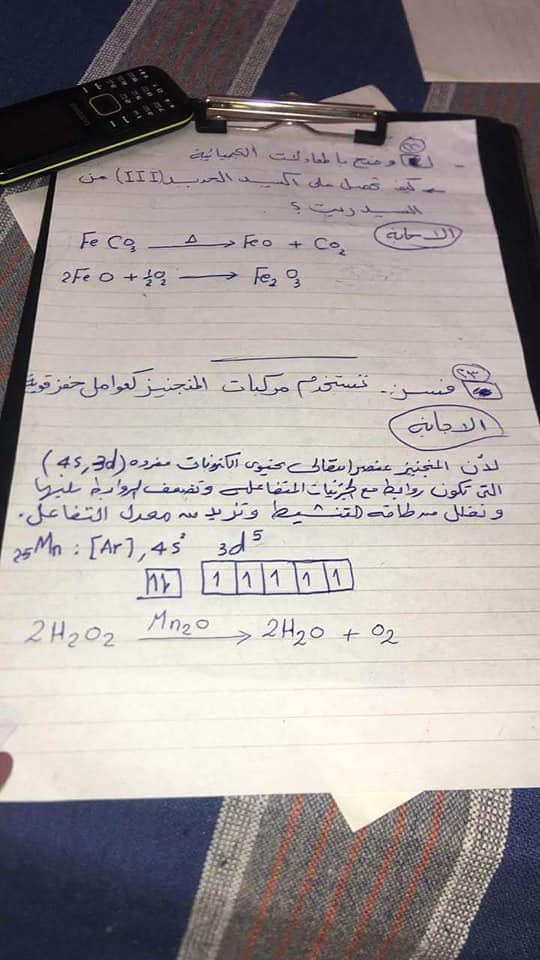 (٢٢) وضح بالمعادلات الكيميائية
كيف تحصل على أكسيد الحديد (III) من
السيدريت ؟
الاجابة
FeCO₃ —Δ→ FeO + CO₂
2FeO + ½O₂ ⟶ Fe₂O₃
(٢٣) فسر .. تستخدم مركبات المنجنيز كعوامل حفز قوية
الاجابة
لأن المنجنيز عنصر انتقالى يحتوى الكترونات مفرده (4s, 3d)
التى تكون روابط مع الجزئيات المتفاعلة وتضعف الروابط بينها
وتقلل من طاقة التنشيط وتزيد من معدل التفاعل.
₂₅Mn : [Ar], 4s² 3d⁵
↿⇂ ↿ ↿ ↿ ↿ ↿
2H₂O₂ —Mn₂O→ 2H₂O + O₂